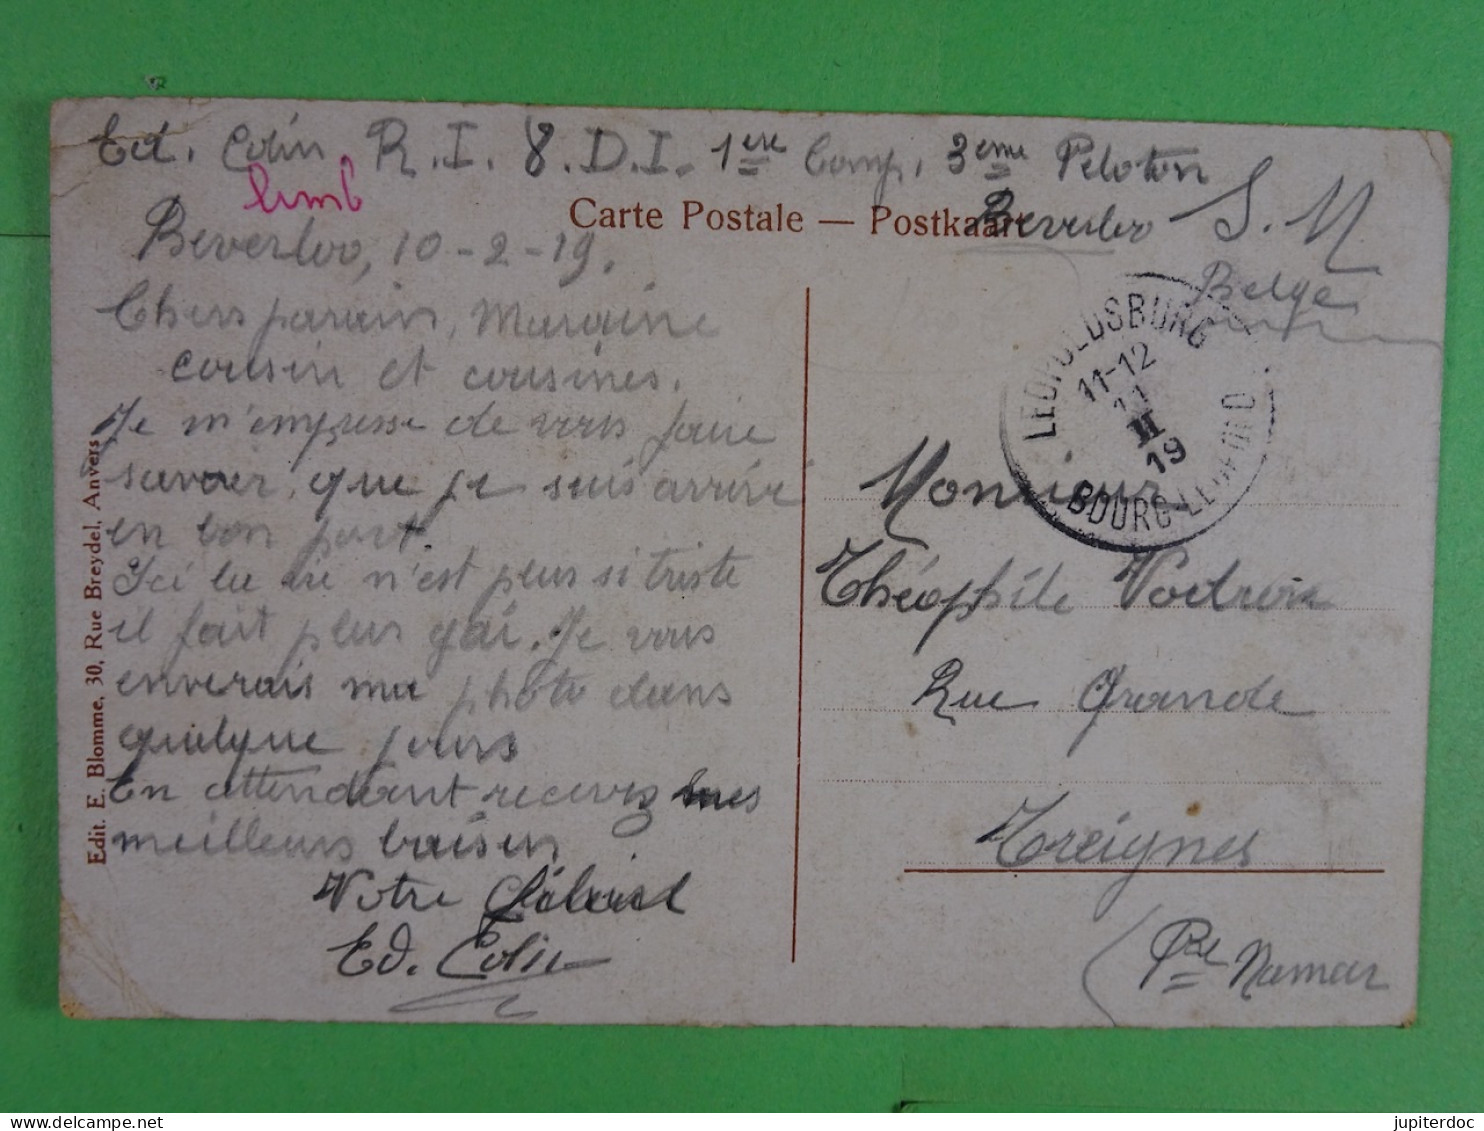 Ed. Colin R.I. 8. D.I. 1ère Comp. 3eme Peloton
limb
Beverloo S.M
Belge
Carte Postale — Postkaart
Beverloo, 10-2-19.
Chers parain, Maraine
cousin et cousines.
Je m'empresse de vous faire
savoir que je suis arrivé
en bon port.
Ici la vie n'est plus si triste
il fait plus gai. Je vous
enverais ma photo dans
quelque jours
En attendant recevez mes
meilleurs baisers
Votre
Ed. Colin
Edit. E. Blomme, 30, Rue Breydel, Anvers
LEOPOLDSBURG
11-12
11
II
19
BOURG-LEOPOLD
Monsieur
Théophile
Rue Grande
Treignes
(Pce Namur
jupiterdoc